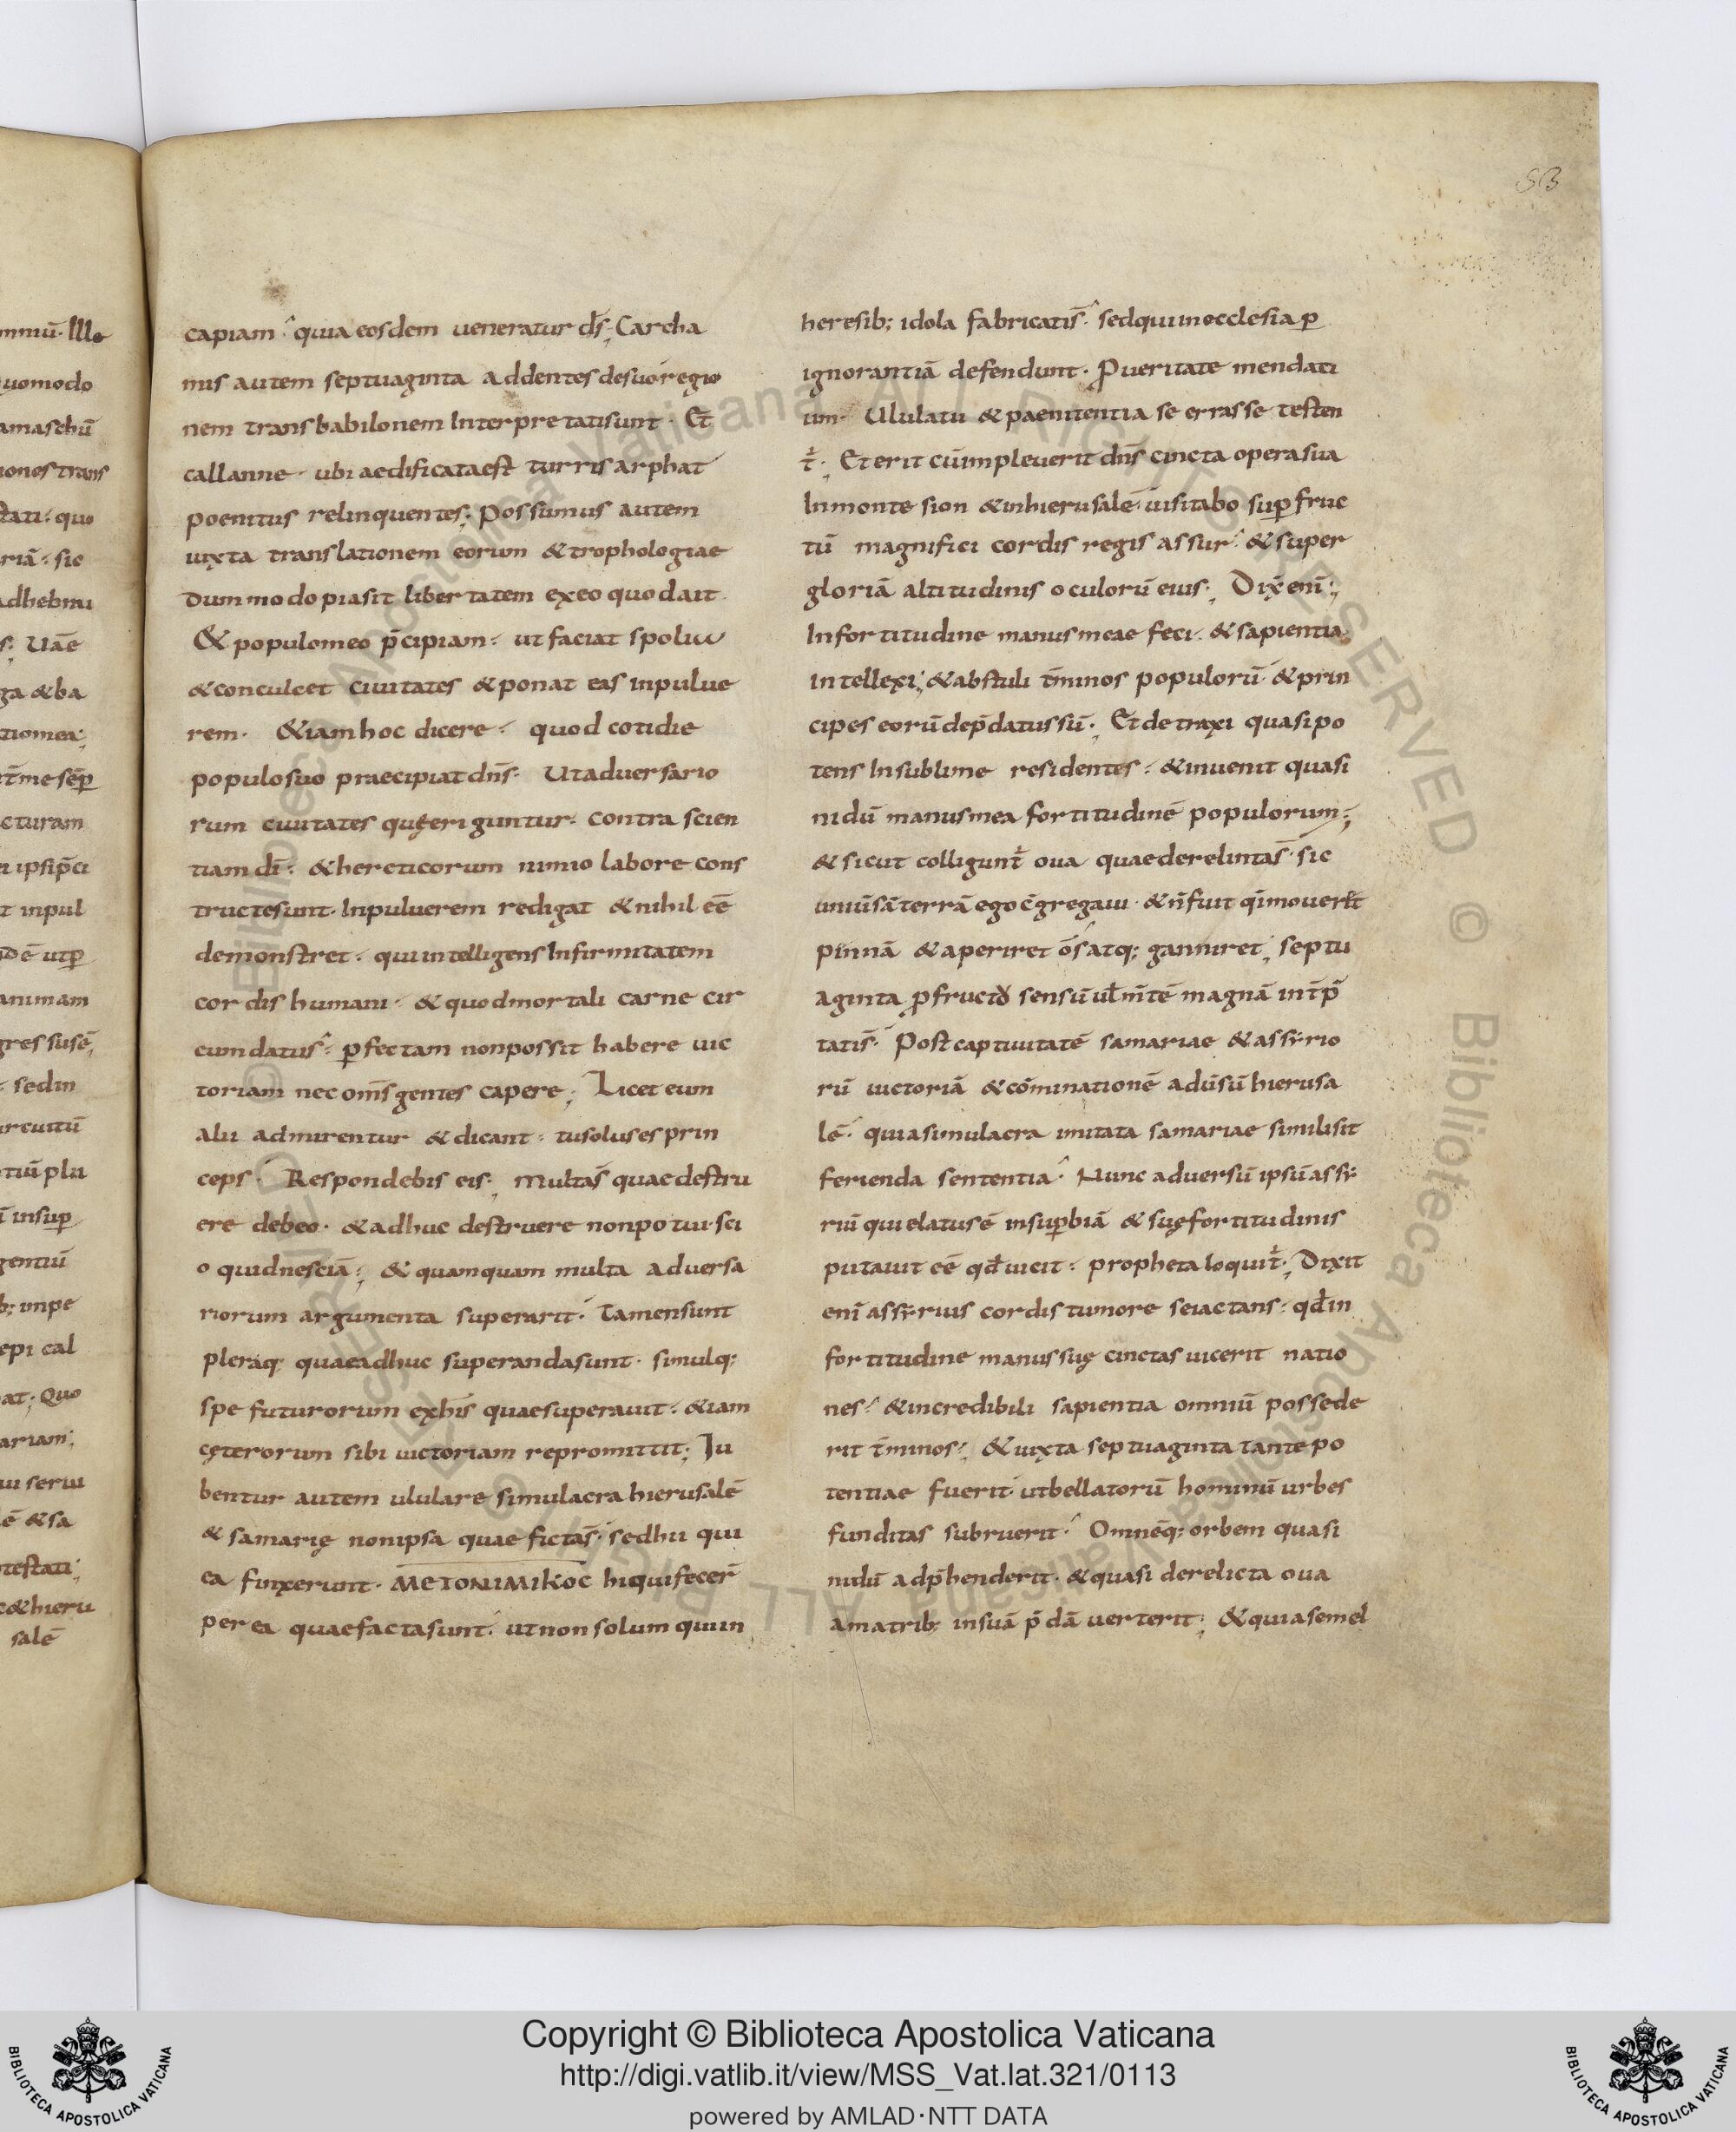 mmū· Ille
uomodo
amaschū
iones trans
stati: quo
riā: sic
adhebrui
s; Uāe
ga &ba
tionea;
t̄me sēp
cturam
ei ipsip̄ci
t inpul
dē utp
animam
gressusē;
: sedin
ircuitū
tiū plu
ī insup
gentiū
b; impe
epi cal
at; Quo
ariam;
ui serui
ē &sa
testati;
c&hieru
salē
capiam· quia eosdem ueneratur d̄s; Carcha
mis autem septuaginta addentes desuo regio
nem trans babilonem Interpretatisunt· Et
callanne· ubi aedificataest turris arphat
poenitus relinquentes; Possumus autem
iuxta translationem eorum &trophologiae
dummodo piasit libertatem exeo quodait
& populomeo p̄cipiam: ut faciat spoliu
&conculcet ciuitates &ponat eas inpulue
rem· &iam hoc dicere: quod cotidie
populosuo praecipiat dn̄s· Utaduersario
rum ciuitates quęeriguntur· contra scien
tiam dī: &hereticorum nimio labore cons
tructesunt· Inpuluerem redigat &nihil eē
demonstret: quiintelligens Infirmitatem
cordis humani: &quodmortali carne cir
cumdatus· pfectam nonpossit habere uic
toriam nec om̄s gentes capere; Licet eum
alii admirentur &dicant: tusoluses prin
ceps· Respondebis eis; multas̄ quae destru
ere debeo· &adhuc destruere nonpotui· sci
o quidnesciā; & quamquam multa aduersa
riorum argumenta superarit· Tamensunt
pleraq; quaeadhuc superandasunt· simulq;
spe futurorum exhis quaesuperauit· &iam
cęterorum sibi uictoriam repromittit; Iu
bentur autem ululare simulacra hierusalē
& samarię nonipsa quae fictas̄· sedhii qui
ea finxerunt· METONIMIKOC hiquifecer̄
per ea quaefactasunt: utnon solum quiin
heresib; idola fabricatis̄· sedquiinecclesia p
ignorantiā defendunt· Pueritate mendati
um· Ululatu &paenitentia se errasse testen
t̄; Et erit cūimpleuerit dn̄s cuncta operasua
Inmonte sion &inhierusalē· uisitabo sup fruc
tū magnifici cordis regis assur· &super
gloriā altitudinis oculorū eius; Dix̄ enī;
Infortitudine manusmeae feci· &sapientia
intellexi; &abstuli t̄minos populorū· &prin
cipes eorū dep̄datussū; Et detraxi quasi po
tens Insublime residentes: &inuenit quasi
nidū manusmea fortitudinē populorum;
& sicut colligunt̄ oua quaederelintas̄· sic
uniūsā terrā ego c̄gregaui· &n̄fuit qimouer&
pinnā &aperiret ōs atq; ganniret; septu
aginta pfructu sensū ul̄ m̄tē magnā int̄p̄
tatis̄· Post captiuitatē samariae &assyrio
rū uictoriā &cōminationē aduīsū hierusa
lē· quiasimulacra imitata samariae similisit
ferienda sententia· Nunc aduersū ipsū assy
riū qui elatusē insupbiā & suęfortitudinis
putauit eē qd̄ uicit: propheta loquit̄; Dixit
enī assyrius cordis tumore seiactans: qd̄in
fortitudine manus suę cunctas uicerit natio
nes: &incredibili sapientia omniū possede
rit t̄minos; &iuxta septuaginta tante po
tentiae fuerit· utbellatorū hominū urbes
funditas subruerit· Omnēq; orbem quasi
nidū adp̄henderit· &quasi derelicta oua
amatrib; insuā p̄dā uerterit; &quiasemel
Copyright © Biblioteca Apostolica Vaticana
http://digi.vatlib.it/view/MSS_Vat.lat.321/0113
powered by AMLAD·NTT DATA
BIBLIOTECA APOSTOLICA VATICANA
BIBLIOTECA APOSTOLICA VATICANA